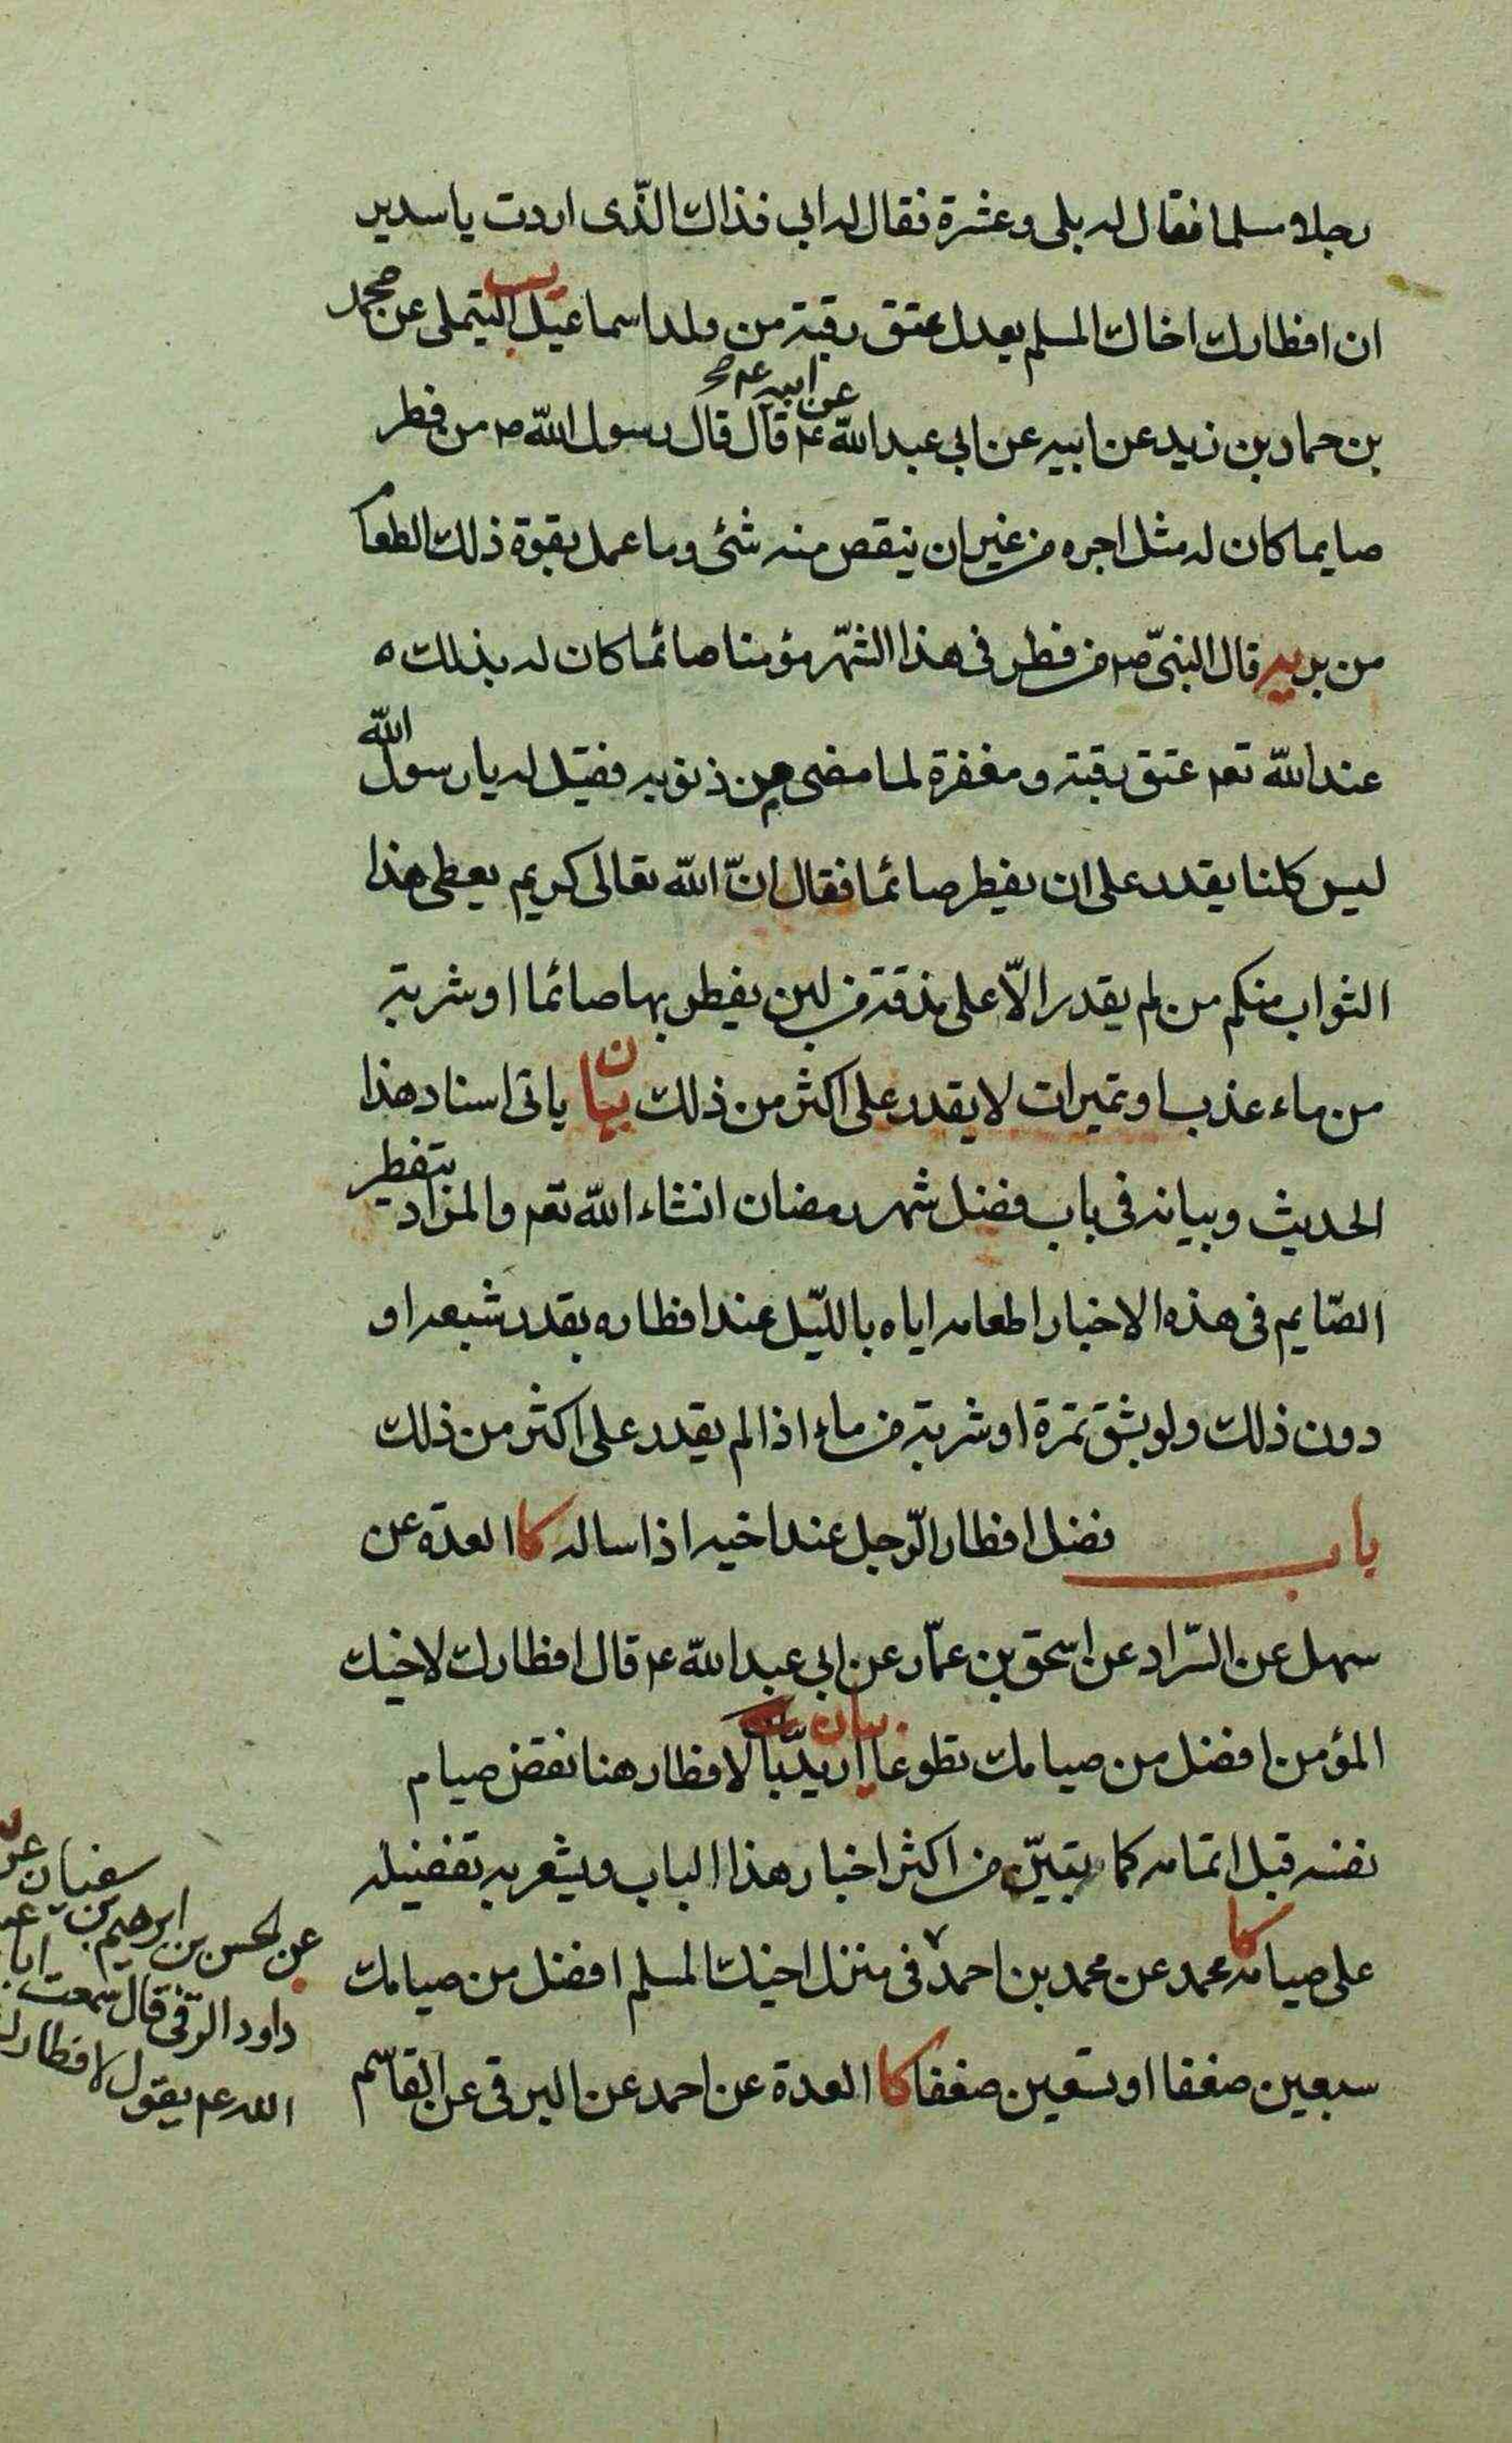 رجلا مسلما فقال له بلى وعشرة فقال له ابي فذاك الذّى اردت يا سدير
ان افطارك اخاك المسلم يعدل عتق رقبة من ولد اسماعيل يب التيملى عن محمد
بن حماد بن زيد عن ابيه عن ابى عبد الله ع عن ابيه ع صح قال قال رسول الله ص من فطر
صايما كان له مثل اجره من غير ان ينقص منه شئ وما عمل بقوة ذلك الطعام
من بر يه قال النبىّ ص من فطر فى هذا الشّهر مؤمنا صائما كان له بذلك ه
عند الله تعم عتق رقبة ومغفرة لما مضى من ذنوبه فقيل له يا رسول الله
ليس كلنا يقدر على ان يفطر صائما فقال انّ الله تعالى كريم يعطى هذا
الثواب منكم من لم يقدر الّا على مذقة من لبن يفطر بها صائما او شربة
من ماء عذب او تميرات لا يقدر على اكثر من ذلك بيان ياتى اسناد هذا
الحديث وبيانه فى باب فضل شهر رمضان انشاء الله تعم والمراد بتفطير
الصّايم فى هذه الاخبار اطعامه اياه بالليّل عند افطاره بقدر شبعه او
دون ذلك ولو بشق تمرة او شربة من ماء اذا لم يقدر على اكثر من ذلك
باب فضل افطار الرّجل عند اخيه اذا ساله كا العدة عن
سهل عن السّراد عن اسحق بن عمّار عن ابى عبد الله ع قال افطارك لاخيك
المؤمن افضل من صيامك تطوعا بيان اريد بالافطار هنا نقض صيام
نفسه قبل اتمامه كما يتبيّن من اكثر اخبار هذا الباب ويشعر به تفضيله
على صيامه كا محمد عن محمد بن احمد فى منزل اخيك المسلم افضل من صيامك
سبعين ضعفا او تسعين ضعفا كا العدة عن احمد عن البرقى عن القاسم
عن الحسن بن ابرهيم بن سفيان عن
داود الرّقى قال سمعت ابا عبد
الله عم يقول لافطارك